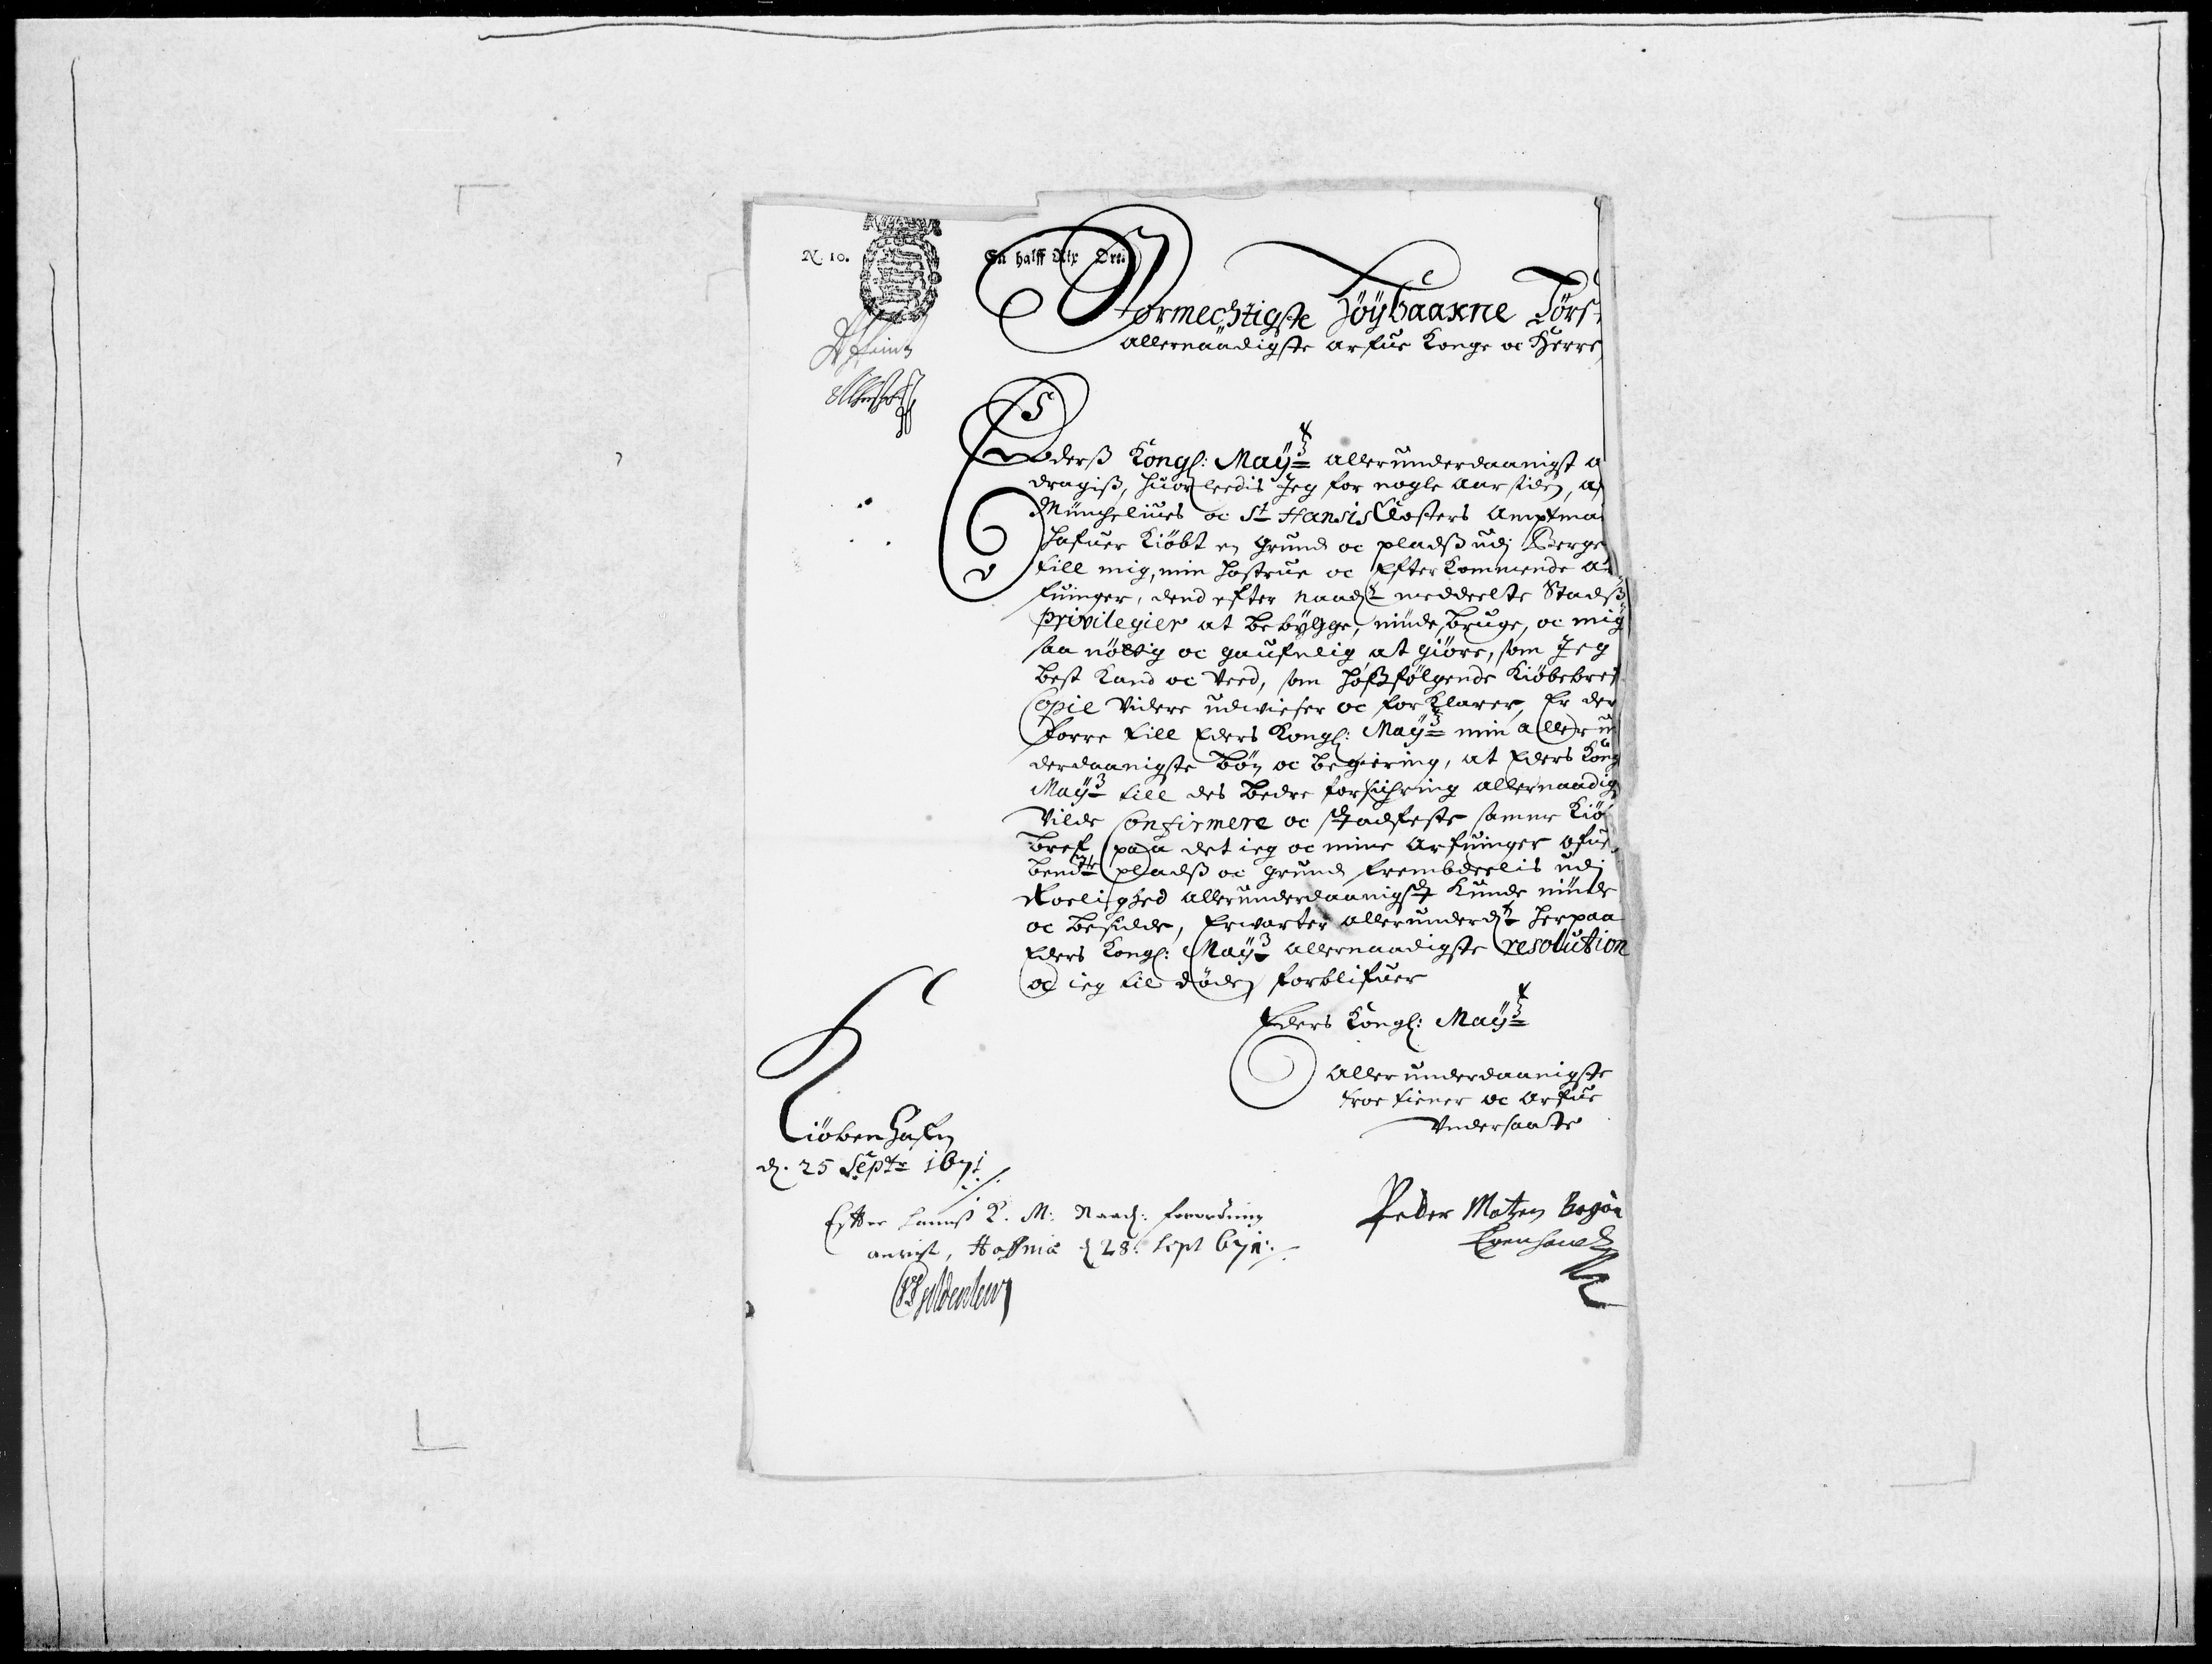 N. 10.
En halff Rix Ort
Stormechtigste Höÿbaarne Førs
Allernaadigste arfue Konge oc Herre
Ederß Kongl: Maÿtz allerunderdaanigst a
dragiß, huorleedis Jeg for nogle aar siden, af
Munckeliues oc St Hansis Closters Amptma
hafuer Kiöbt en grund oc pladß udj Berge
till mig, min hostrue oc Efterkommende ar
fuinger, dend efter naadst meddeelte Stadß
privilegier at bebÿgge, nÿde, bruge, oc mig
saa nöttig oc gaufnlig at giöre, som Jeg
best Kand oc Veed, som hoßfölgende Kiöbebref
Copie Videre udwiser oc forklarer, Er der
forre till Eders Kongl: Maÿtz min allerun
derdaanigste bön oc begiering, at Eders Kong
Maÿtz till des bedre forsichring allernaadig
Vilde Confirmere oc stadfeste samme Kiö
bref, paa det ieg oc mine Arfuinger ofue
bendte pladß oc grund frembdeelis udj
Roelighed allerunderdaanigst Kunde nÿde
oc besidde, Erwarter allerunderdst herpaa
Eders Kongl: Maÿtz allernaadigste resolution
oc ieg til döden forblifuer
Eders Kongl: Maÿtz
Allerunderdaanigste
troe tiener oc Arfue
Vndersaatte
Kiöbenhafn
d. 25 Septr 1671
Peder Matzen
Egenhand
Efter hannß K. M: Naadl: forordning
anvist, Haffniæ d 28. Sept 671.
Gyldenlew